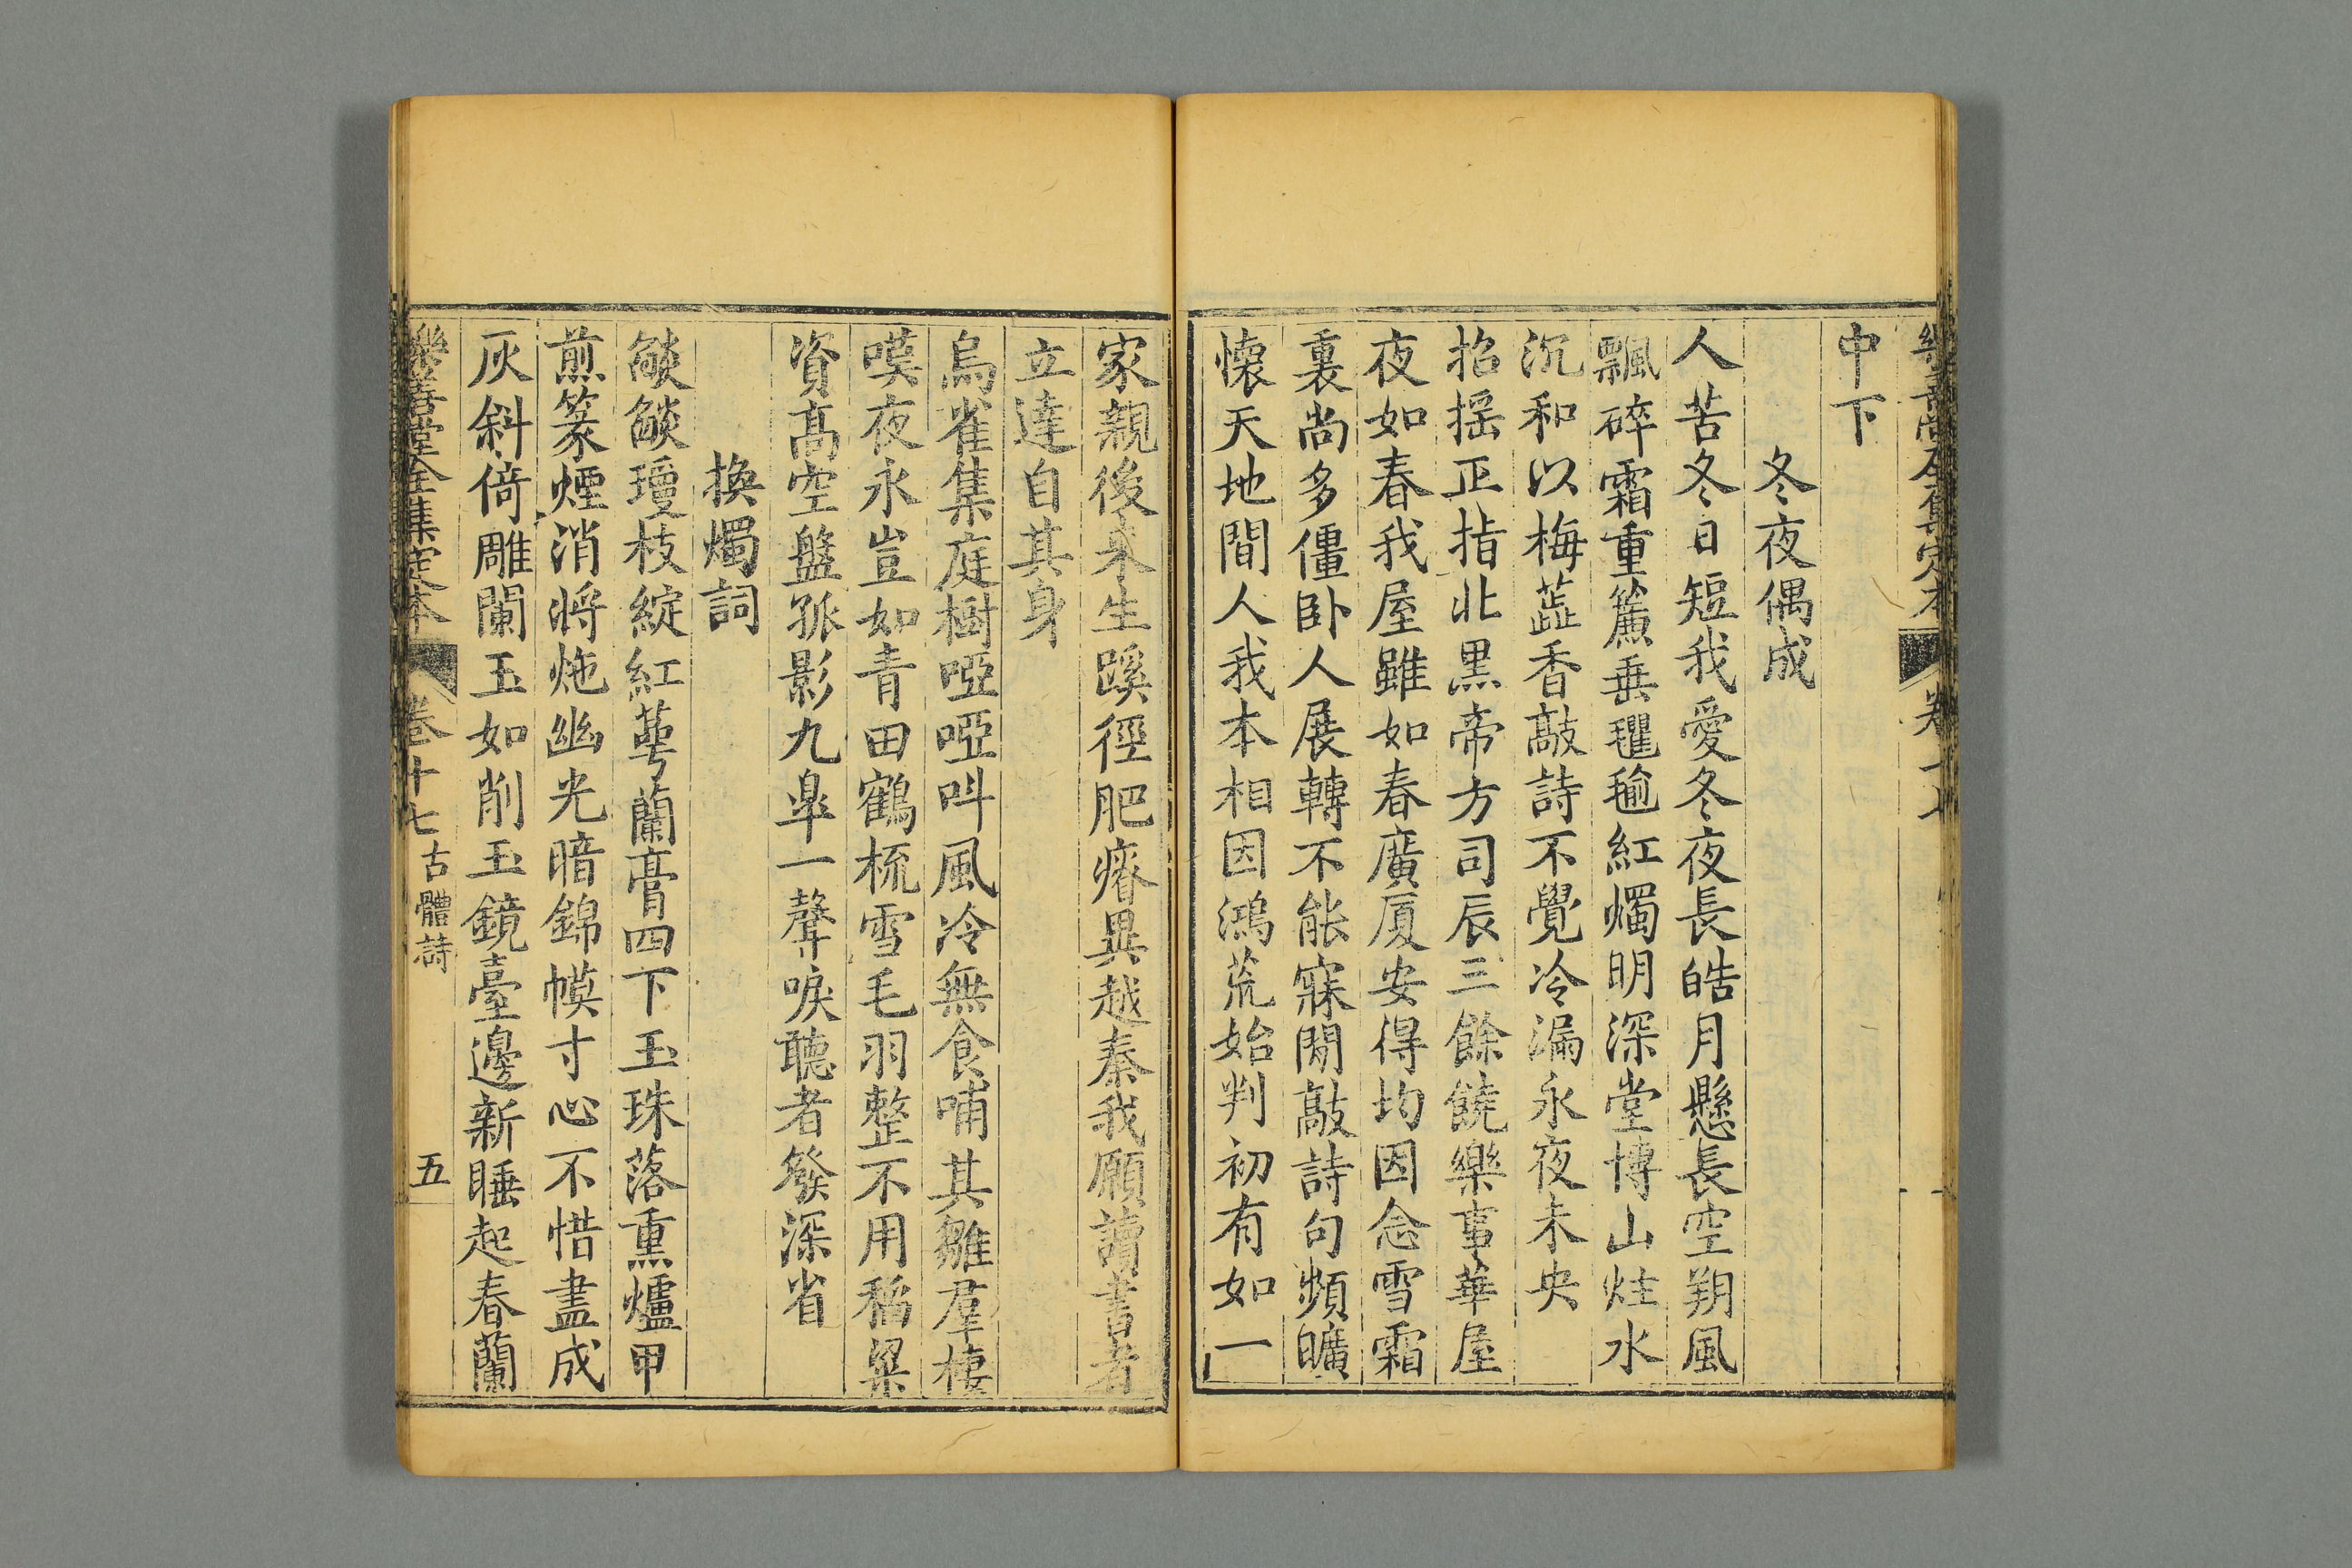 中下
冬夜偶成
人苦冬日短我愛冬夜長皓月懸長空朔風
飄碎霜重簾垂氍毹紅燭明深堂博山炷水
沉和以梅蕋香敲詩不覺冷漏永夜未央
招摇正指北黑帝方司辰三餘饒樂事華屋
夜如春我屋雖如春廣厦安得均因念雪霜
裏尚多僵卧人展轉不能寐閒敲詩句頻曠
懷天地間人我本相因鴻荒始判初有如一
家親後來生蹊徑肥瘠異越秦我願讀書者
立達自其身
烏雀集庭樹啞啞呌風冷無食哺其雛羣棲
嘆夜永豈如青田鶴梳雪毛羽整不用稻粱
資高空盤孤影九臯一聲唳聽者發深省
換燭詞
燄燄瓊枝綻紅萼蘭膏四下玉珠落熏爐甲
煎篆煙消將炧幽光暗錦幙寸心不惜盡成
灰斜倚雕闌玉如削玉鏡臺邊新睡起春蘭
樂善堂全集定本 卷十七 古體詩 五